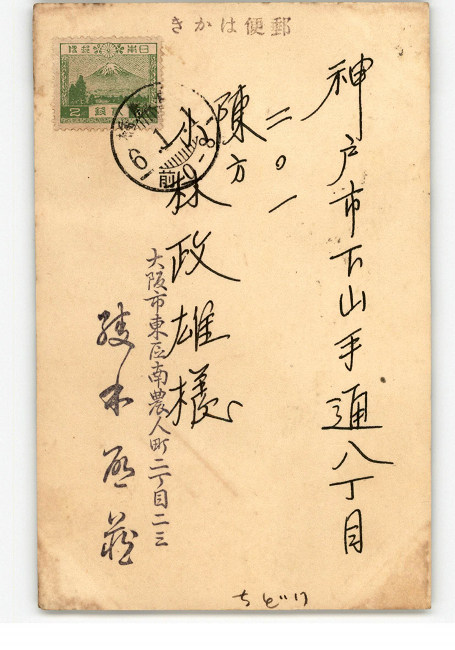 郵便はかき
神戸市下山手通八丁目
二〇一
陳方
小林政雄様
大阪市東区南農人町二丁目二三
綾木
ちどり
大日本帝国郵便
前